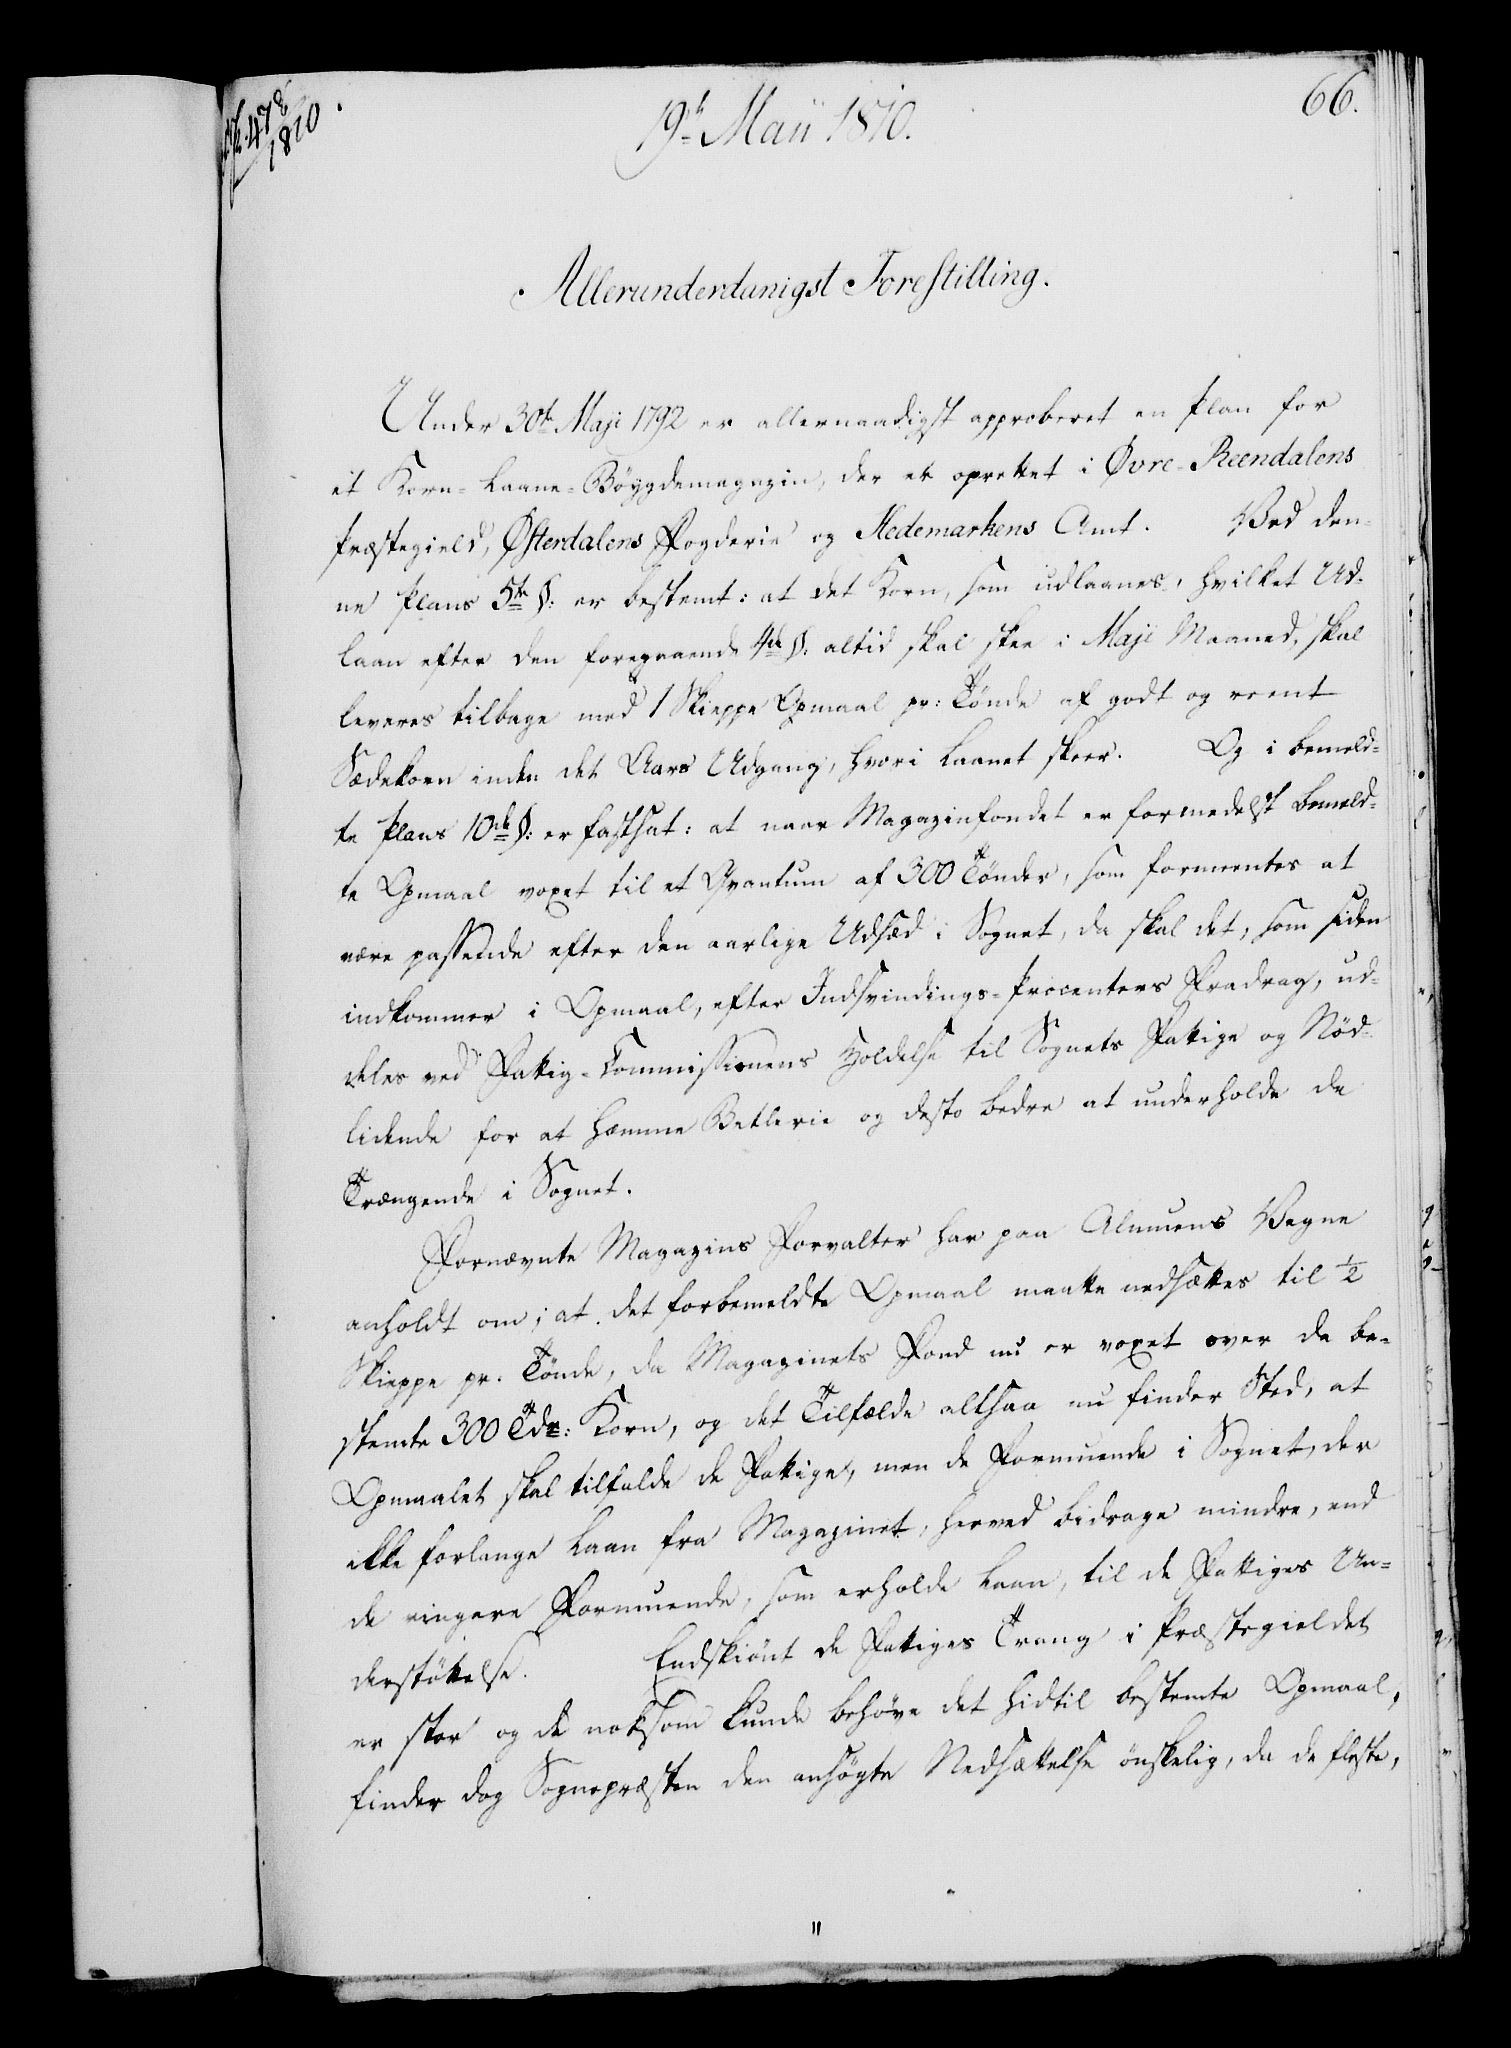 478
1810.
66.
19de Maii 1810.
Allerunderdanigst Forestilling.
Under 30te Maji 1792 er allernaadigst approberet en Plan for
et Korn-Laane-Böygdemagazin, der er oprettet i Øvre-Reendalens
Præstegield, Østerdalens Fogderie og Hedemarkens Amt. Ved den-
ne Plans 5te §: er bestemt: at det Korn, som udlaanes, hvilket Ud-
laan efter den foregaaende 4de §. altid skal skee i Maji Maaned, skal
leveres tilbage med 1 Skieppe Opmaal pr: Tönde af godt og reent
Sædekorn inden det Aars Udgang, hvori Laanet skeer. Og i bemeld-
te Plans 10de §: er fastsat: at naar Magazinfondet er formedelst bemeld-
te Opmaal voxet til et Qvantum af 300 Tönder, som formeentes at
være passende efter den aarlige Udsæd i Sognet, da skal det, som siden
indkommer i Opmaal, efter Indsvindings-Procenters Fradrag, ud-
deles ved Fattig-Commissionens Holdelse til Sognets Fattige og Nöd-
lidende for at hæmme Betlerie og desto bedre at underholde de
Trængende i Sognet.
Fornævnte Magazins Forvalter har paa Almuens Vegne
anholdt om; at det forbemeldte Opmaal maatte nedsættes til ½
Skieppe pr. Tönde, da Magazinets Fond nu er voxet over de be-
stemte 300 Tdr: Korn, og det Tilfælde altsaa nu finder Sted, at
Opmaalet skal tilfalde de Fattige, men de Formuende i Sognet, der
ikke forlange Laan fra Magazinet, herved bidrage mindre, end
de ringere Formuende, som erholde Laan, til de Fattiges Un-
derstöttelse. Endskiönt de Fattiges Trang i Præstegieldet
er stor og de noksom kunde behöve det hidtil bestemte Opmaal,
finder dog Sognepræsten den ansögte Nedsættelse önskelig, da de fleste,
"